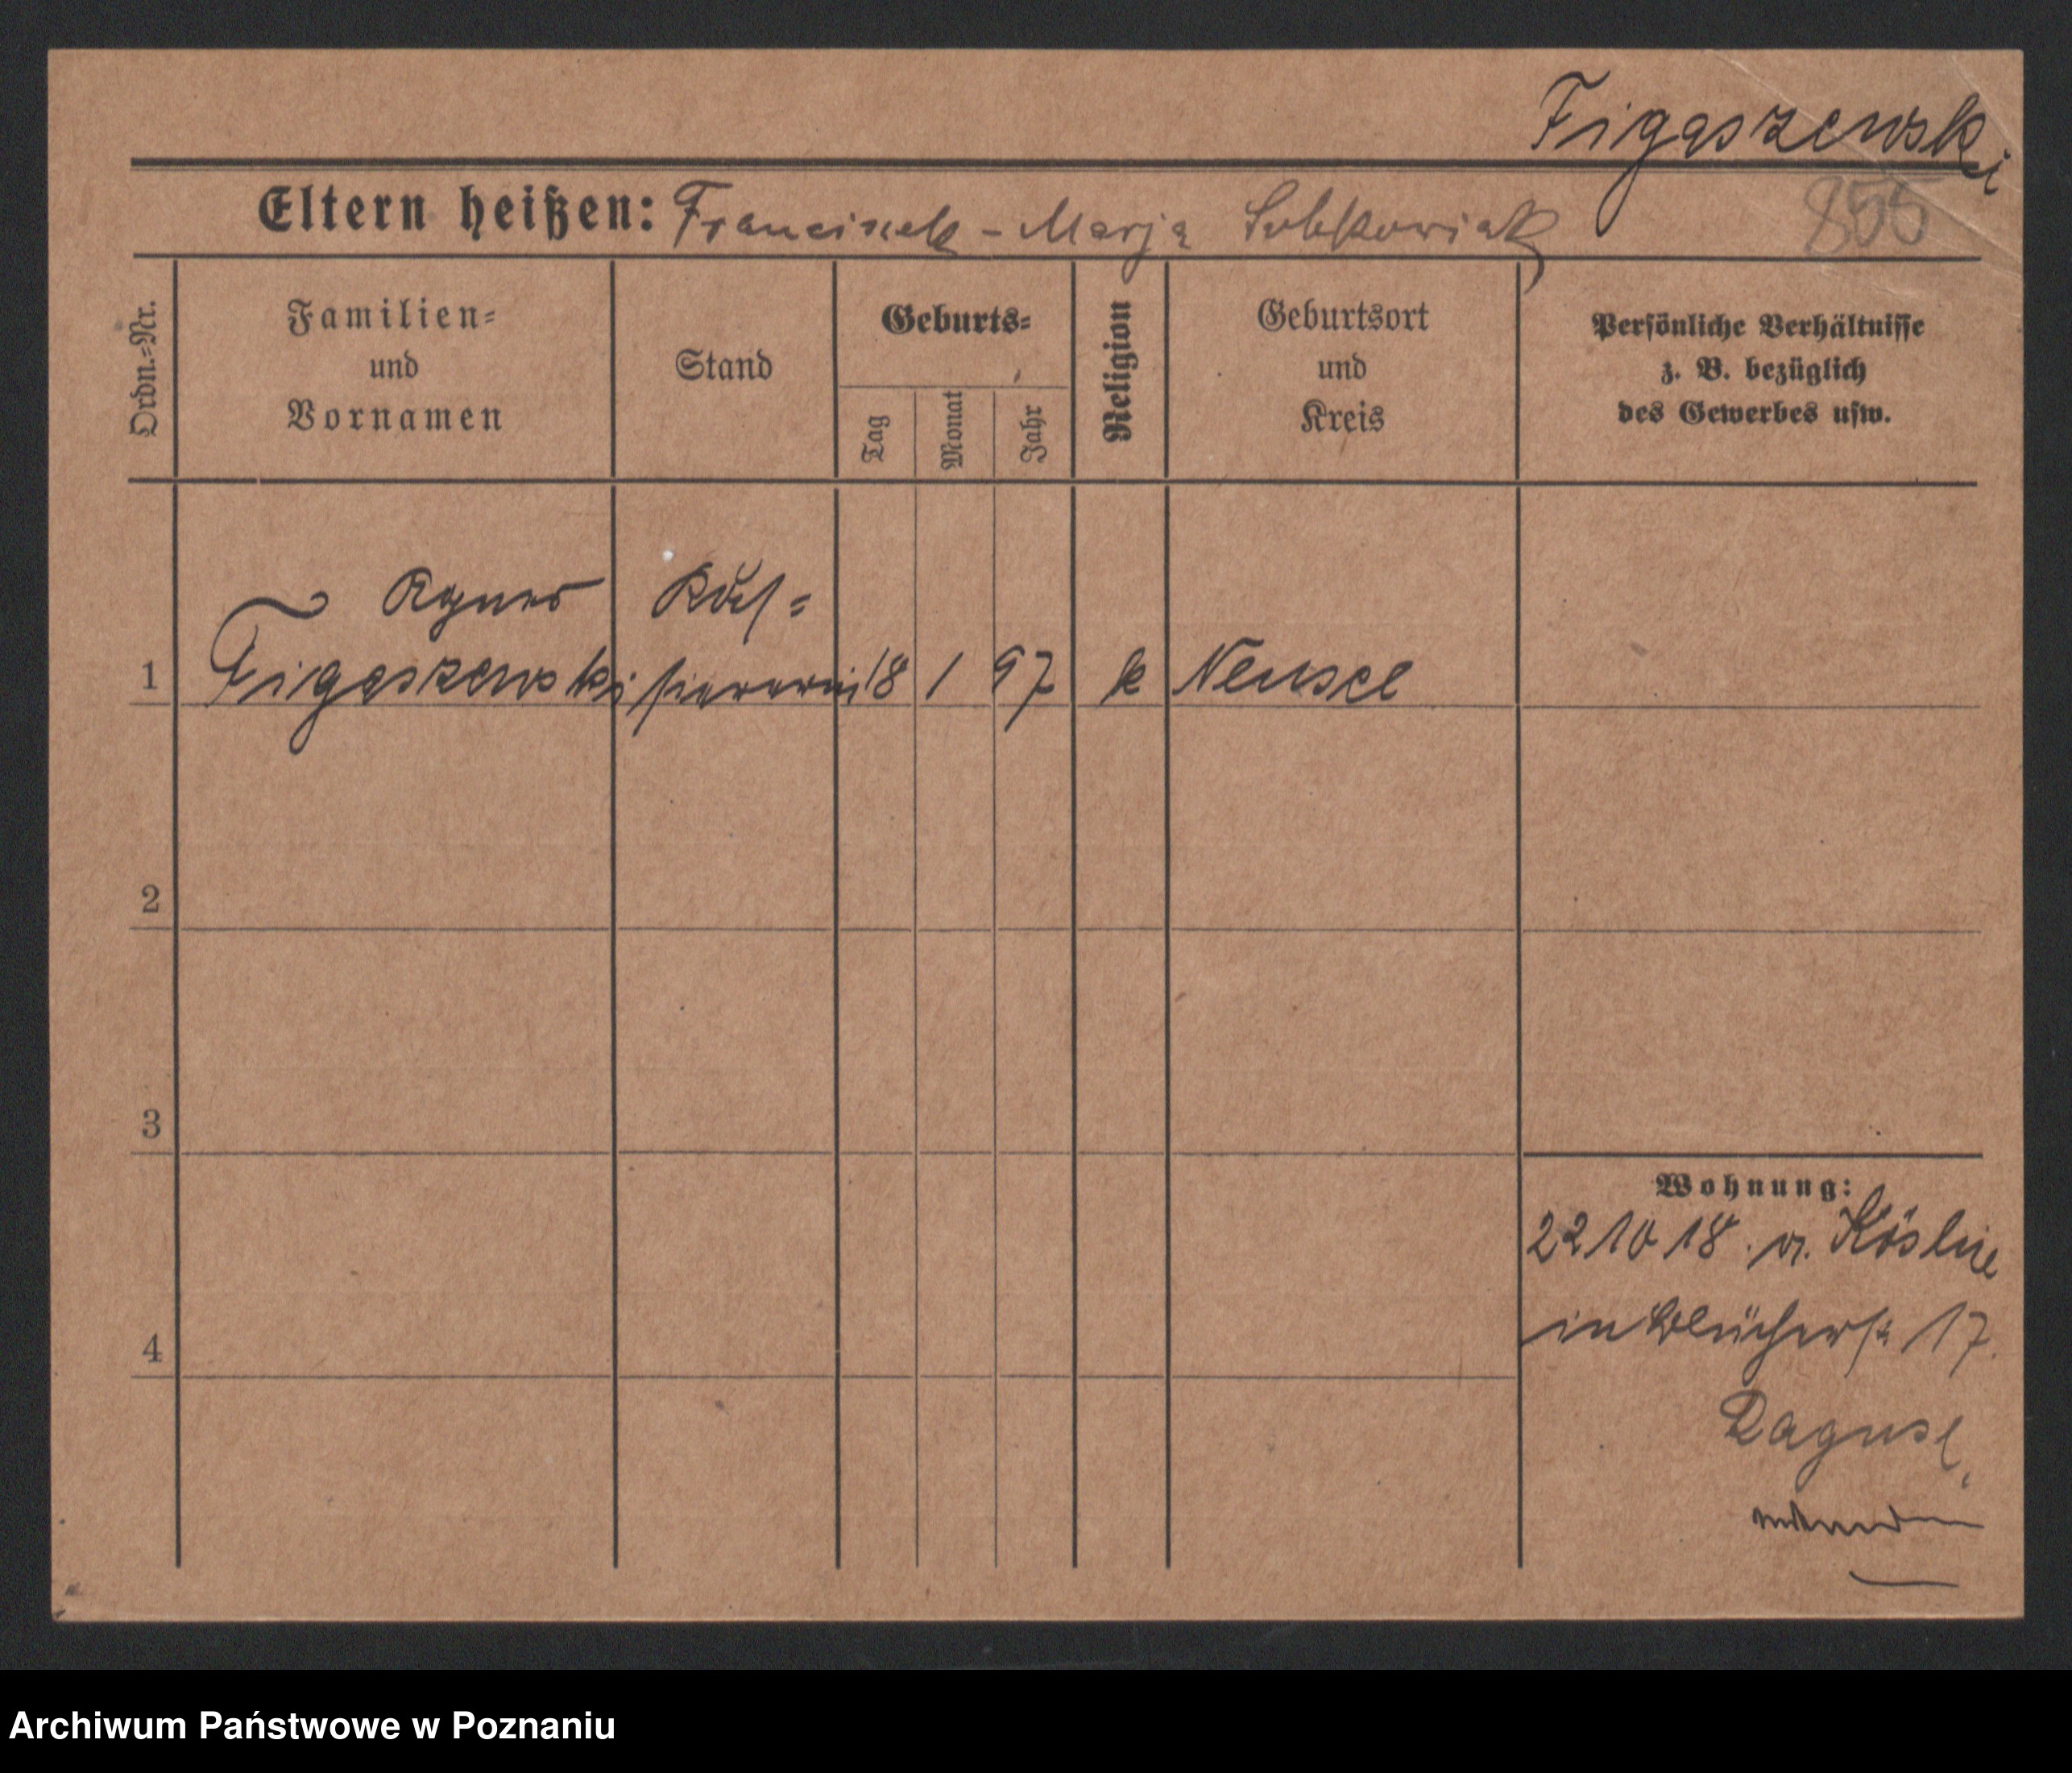 Figaszewski
855
Eltern heißen: Franciszek - Marja Sobkowiak
Ordn.=Nr.
Familien=
und
Vornamen
Stand
Geburts=
Tag
Monat
Jahr
Religion
Geburtsort
und
Kreis
Persönliche Verhältnisse
z. B. bezüglich
des Gewerbes usw.
Agnes Kas=
1 Figaszewski siererin 18 1 97 k Neusee
2
3
4
Wohnung:
22 10 18. v. Köslin
in Blücherstr 17.
Archiwum Państwowe w Poznaniu